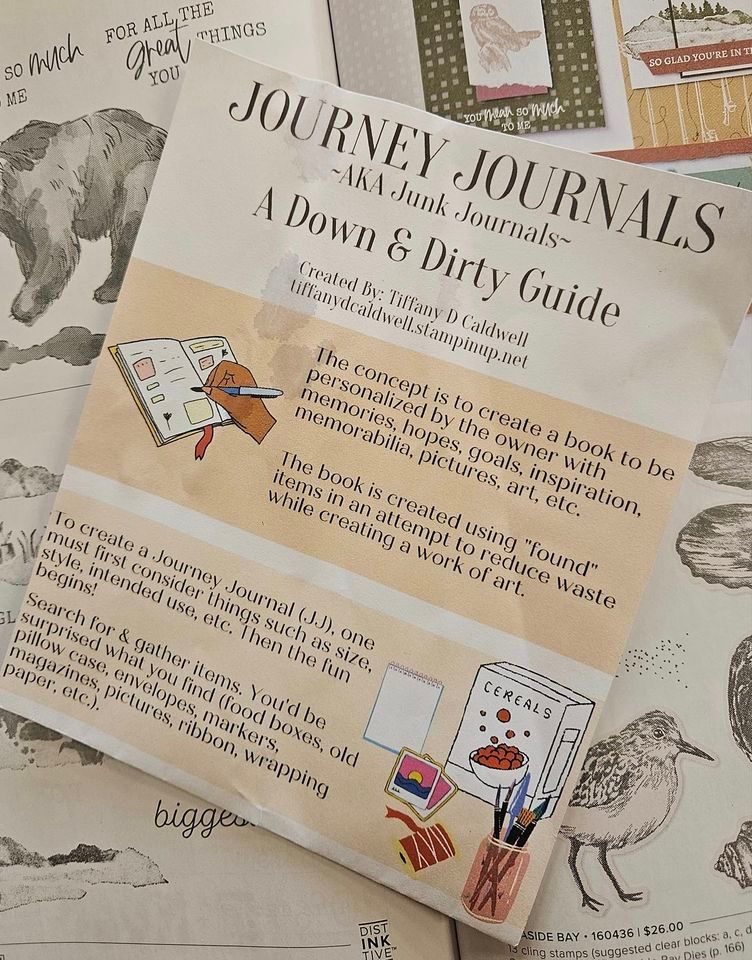 SO much
TO ME
FOR ALL THE
great THINGS
YOU
YOU mean SO much
TO ME
SO GLAD YOU'RE IN
JOURNEY JOURNALS
~AKA Junk Journals~
A Down & Dirty Guide
Created By: Tiffany D Caldwell
tiffanydcaldwell.stampinup.net
The concept is to create a book to be
personalized by the owner with
memories, hopes, goals, inspiration,
memorabilia, pictures, art, etc.
The book is created using "found"
items in an attempt to reduce waste
while creating a work of art.
To create a Journey Journal (JJ), one
must first consider things such as size,
style, intended use, etc. Then the fun
begins!
Search for & gather items. You'd be
surprised what you find (food boxes, old
pillow case, envelopes, markers,
magazines, pictures, ribbon, wrapping
paper, etc.).
CEREALS
biggest
DIST
INK
TIVE™
ASIDE BAY • 160436 | $26.00
13 cling stamps (suggested clear blocks: a, c, d
Bay Dies (p. 166)